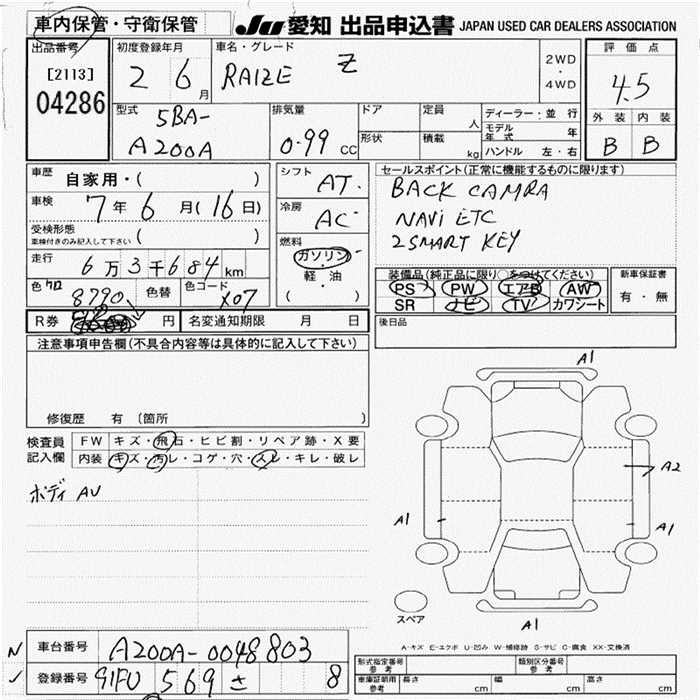 車内保管・守衛保管
JU 愛知 出品申込書 JAPAN USED CAR DEALERS ASSOCIATION
出品番号
[2113]
04286
初度登録年月
2 6月
車名・グレード
RAIZE Z
2WD
・
4WD
評価点
4.5
外装 内装
B B
型式
5BA-
A200A
排気量
0.99 cc
ドア
形状
定員
人
積載
kg
ディーラー・並行
モデル年式 年
ハンドル 左・右
車歴 自家用・( )
車検 7年 6月(16日)
受検形態
車検付きのみ記入して下さい ( )
走行
6万3千684km
色 クロ
8790
色替
色コード
X07
R券 円
名変通知期限 月 日
シフト AT
冷房 AC
燃料
ガソリン
・
軽・油
( )
セールスポイント(正常に機能するものに限ります)
BACK CAMRA
NAVi ETC
2SMART KEY
装備品(純正品に限り○をつけてください)
PS PW エアB AW
SR ナビ TV カワシート
新車保証書
有・無
後日品
注意事項申告欄(不具合内容等は具体的に記入して下さい)
修復歴 有(箇所 )
検査員
記入欄
FW キズ・飛石・ヒビ割・リペア跡・X要
内装 キズ・汚レ・コゲ・穴・スレ・キレ・破レ
ボディ AU
A1
A2
A1
A1
A1
スペア
A-キズ E-エクボ U-凹み W-補修跡 S-サビ C-腐食 XX-交換済
N 車台番号 A200A-0048803
登録番号 91FU 569 さ 8
形式指定番号
参考
類別区分番号
参考
車庫証明用
参考
長さ cm
幅 cm
高さ cm